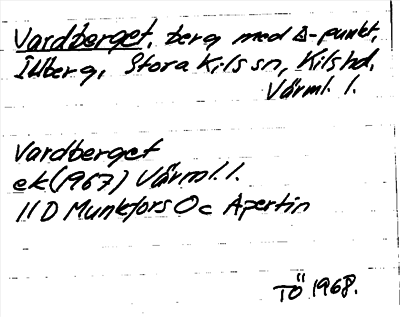 Vardberget, berg med Δ-punkt,
Illberg, Stora Kils sn, Kils hd,
Värml. l.
Vardberget
ek (1967) Värml. l.
11 D Munkfors Ö c Apertin
TÖ 1968.